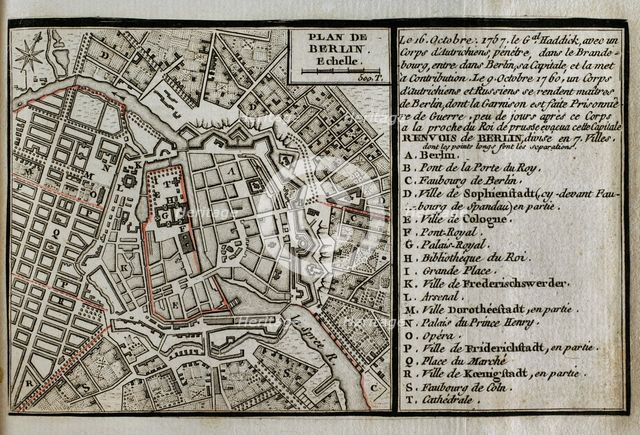 PLAN DE
BERLIN.
Echelle.
500. T.
Le 16. Octobre. 1757. le G.al Haddick, avec un
Corps d'Autrichiens, pénétre dans le Brande-
bourg, entre dans Berlin, sa Capitale, et la met
à Contribution. Le 9 Octobre 1760, un Corps
d'Autrichiens et Russiens se rendent maîtres
de Berlin, dont la Garnison est faite Prisonnie-
re de Guerre, peu de jours après ce Corps
a la proche du Roi de prusse evacua cette Capitale
RENVOIS de BERLIN, divisé en 7. Villes.
dont les points longs font les separations.
A. Berlin.
B. Pont de la Porte du Roy.
C. Faubourg de Berlin.
D. Ville de Sophienstadt, (cy-devant Fau-
bourg de Spandau) en partie.
E. Ville de Cologne.
F. Pont-Royal.
G. Palais-Royal.
H. Bibliothèque du Roi.
I. Grande Place.
K. Ville de Frederischswerder.
L. Arsenal.
M. Ville Dorothéestadt, en partie.
N. Palais du Prince Henry.
O. Opéra.
P. Ville de Friderichstadt, en partie.
Q. Place du Marché
R. Ville de Kœnigstadt, en partie.
S. Faubourg de Coln.
T. Cathédrale.
T
H
G
F
E
K
A
D
B
C
R
S
C
la Sprée R.
Heritage